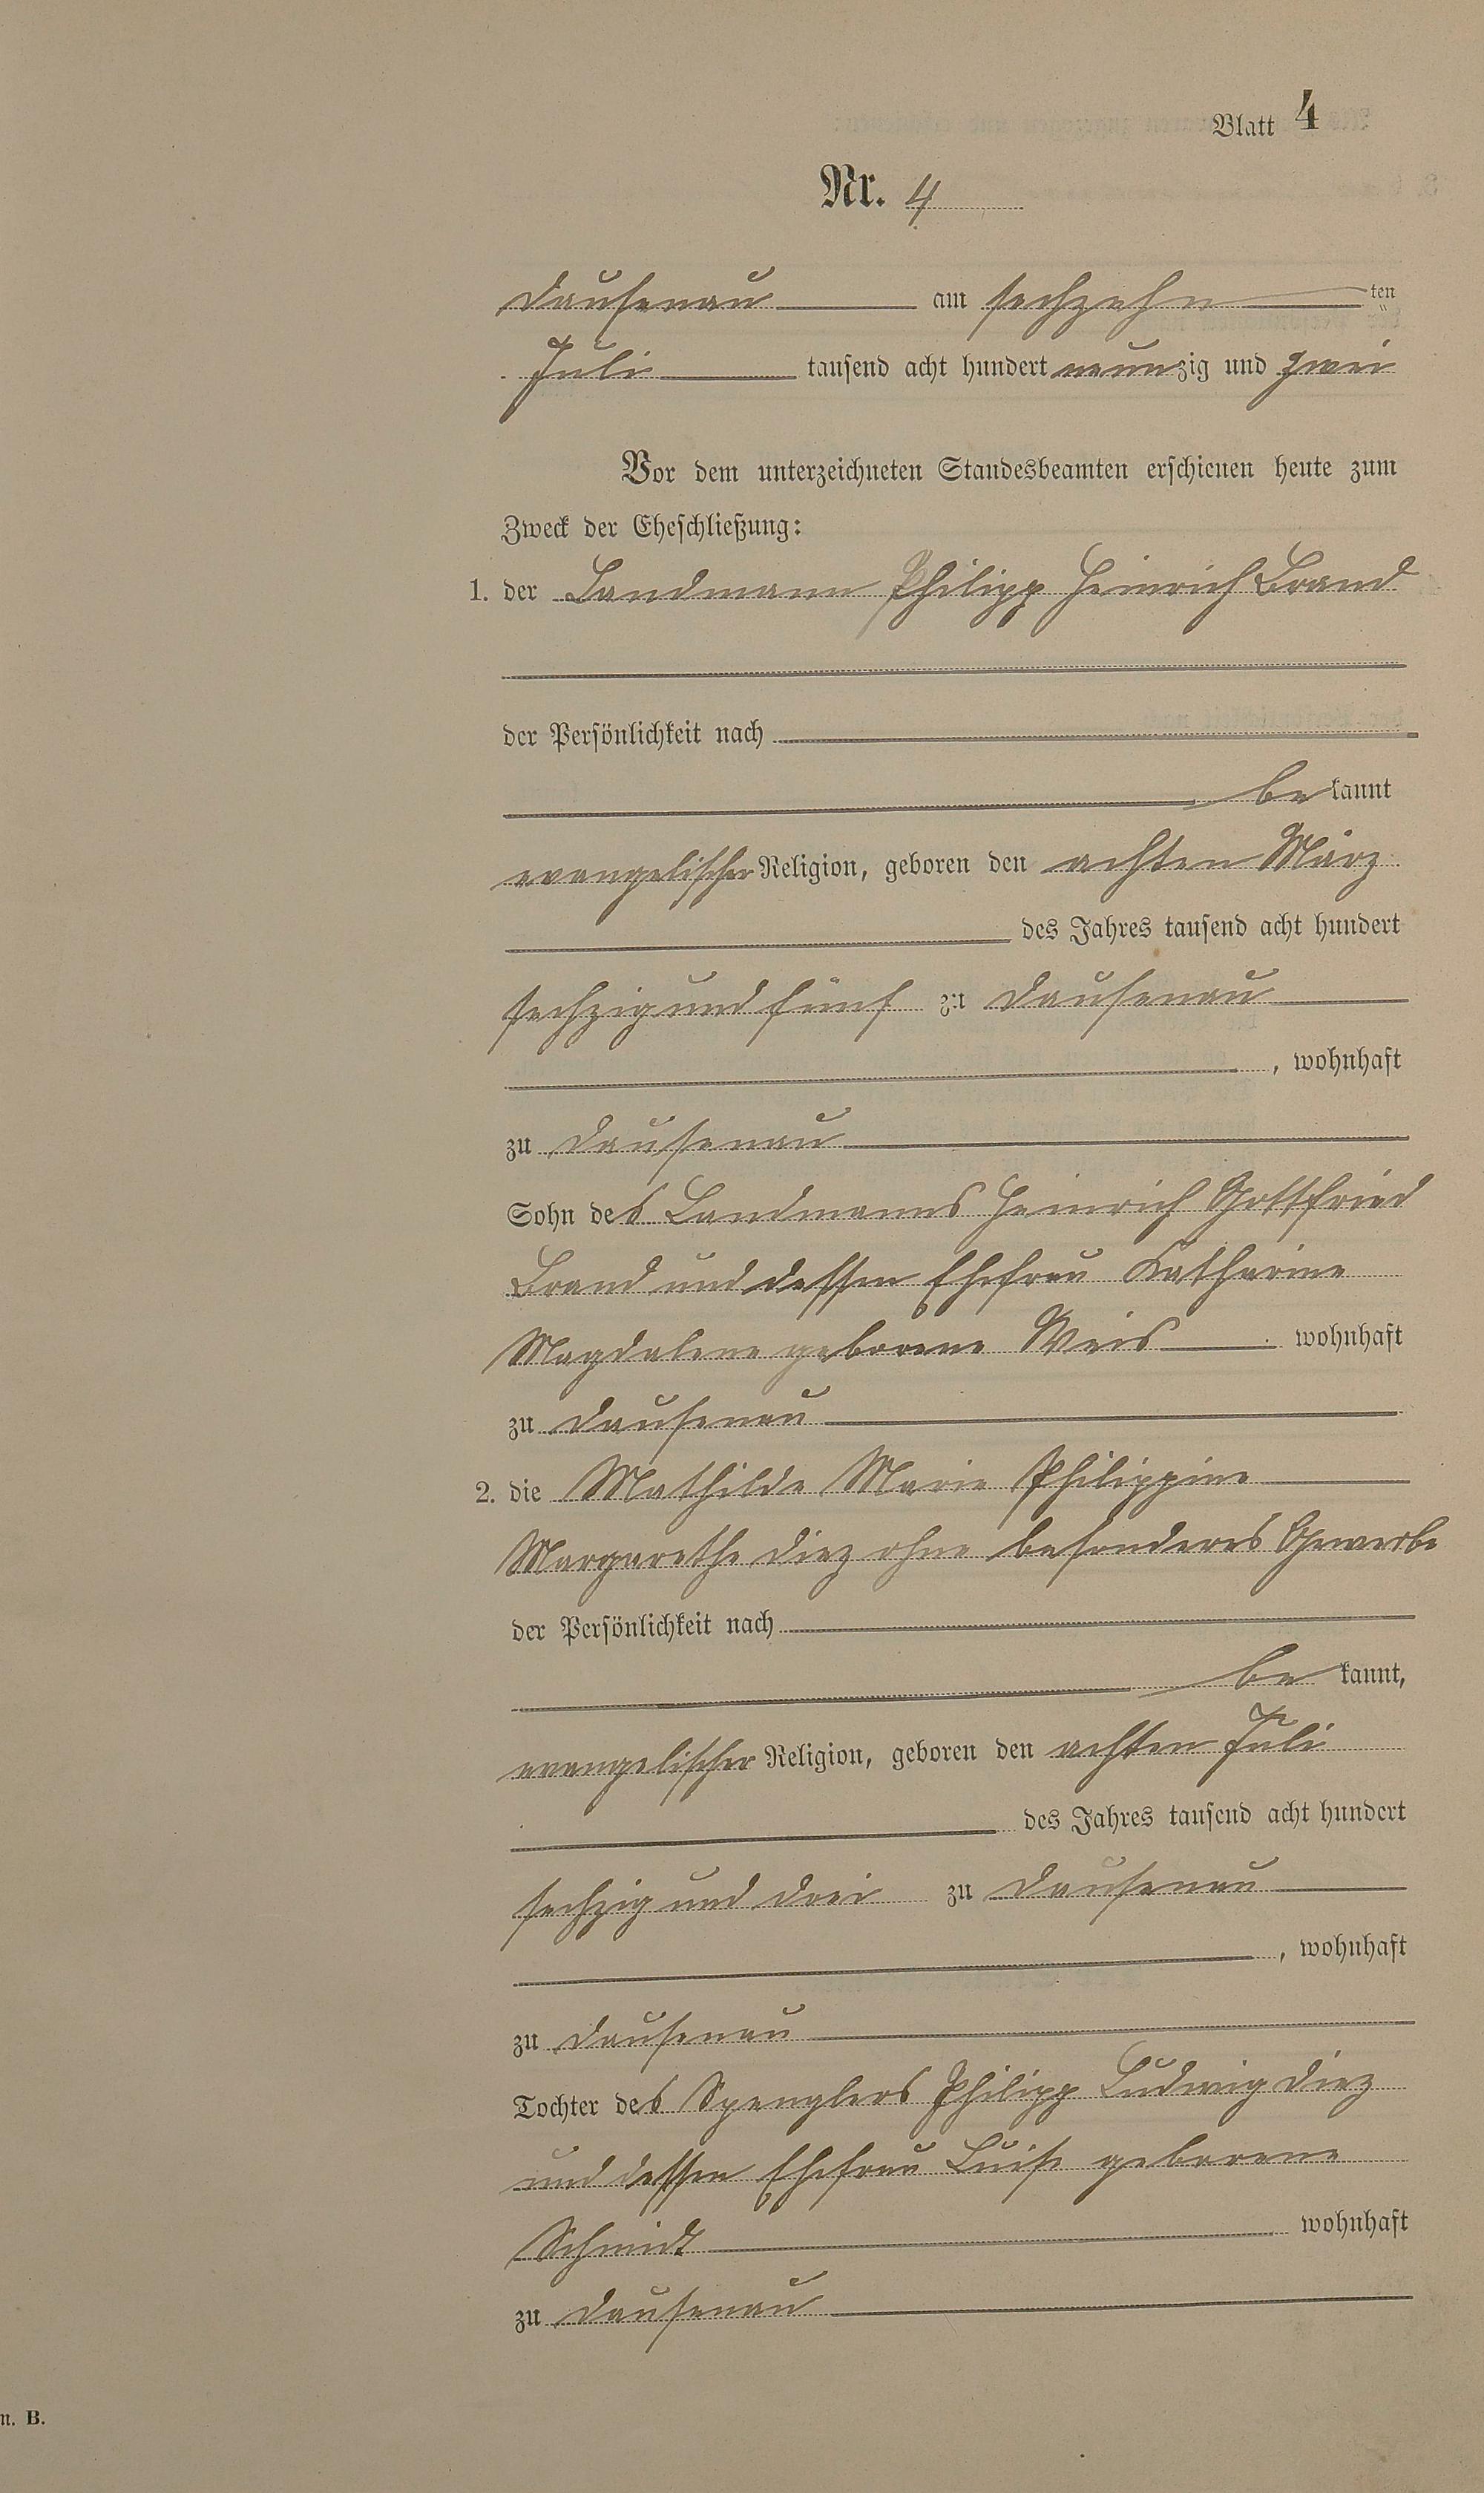 Blatt 4
Nr. 4
Dausenau am sechzehnten
Juli tausend acht hundert neunzig und zwei
Vor dem unterzeichneten Standesbeamten erschienen heute zum
Zweck der Eheschließung:
1. der Landmann Philipp Heinrich Brand
der Persönlichkeit nach
bekannt
evangelischer Religion, geboren den achten März
des Jahres tausend acht hundert
sechzig und fünf zu Dausenau
, wohnhaft
zu Dausenau
Sohn des Landmanns Heinrich Gottfried
Brand und dessen Ehefrau Katharine
Magdalene geborene Weis wohnhaft
zu Dausenau
2. die Mathilde Marie Philippine
Margarethe Diez ohne besonderes Gewerbe
der Persönlichkeit nach
bekannt,
evangelischer Religion, geboren den achten Juli
des Jahres tausend acht hundert
sechzig und drei zu Dausenau
, wohnhaft
zu Dausenau
Tochter des Spenglers Philipp Ludwig Diez
und dessen Ehefrau Luise geborene
Schmidt wohnhaft
zu Dausenau
n. B.